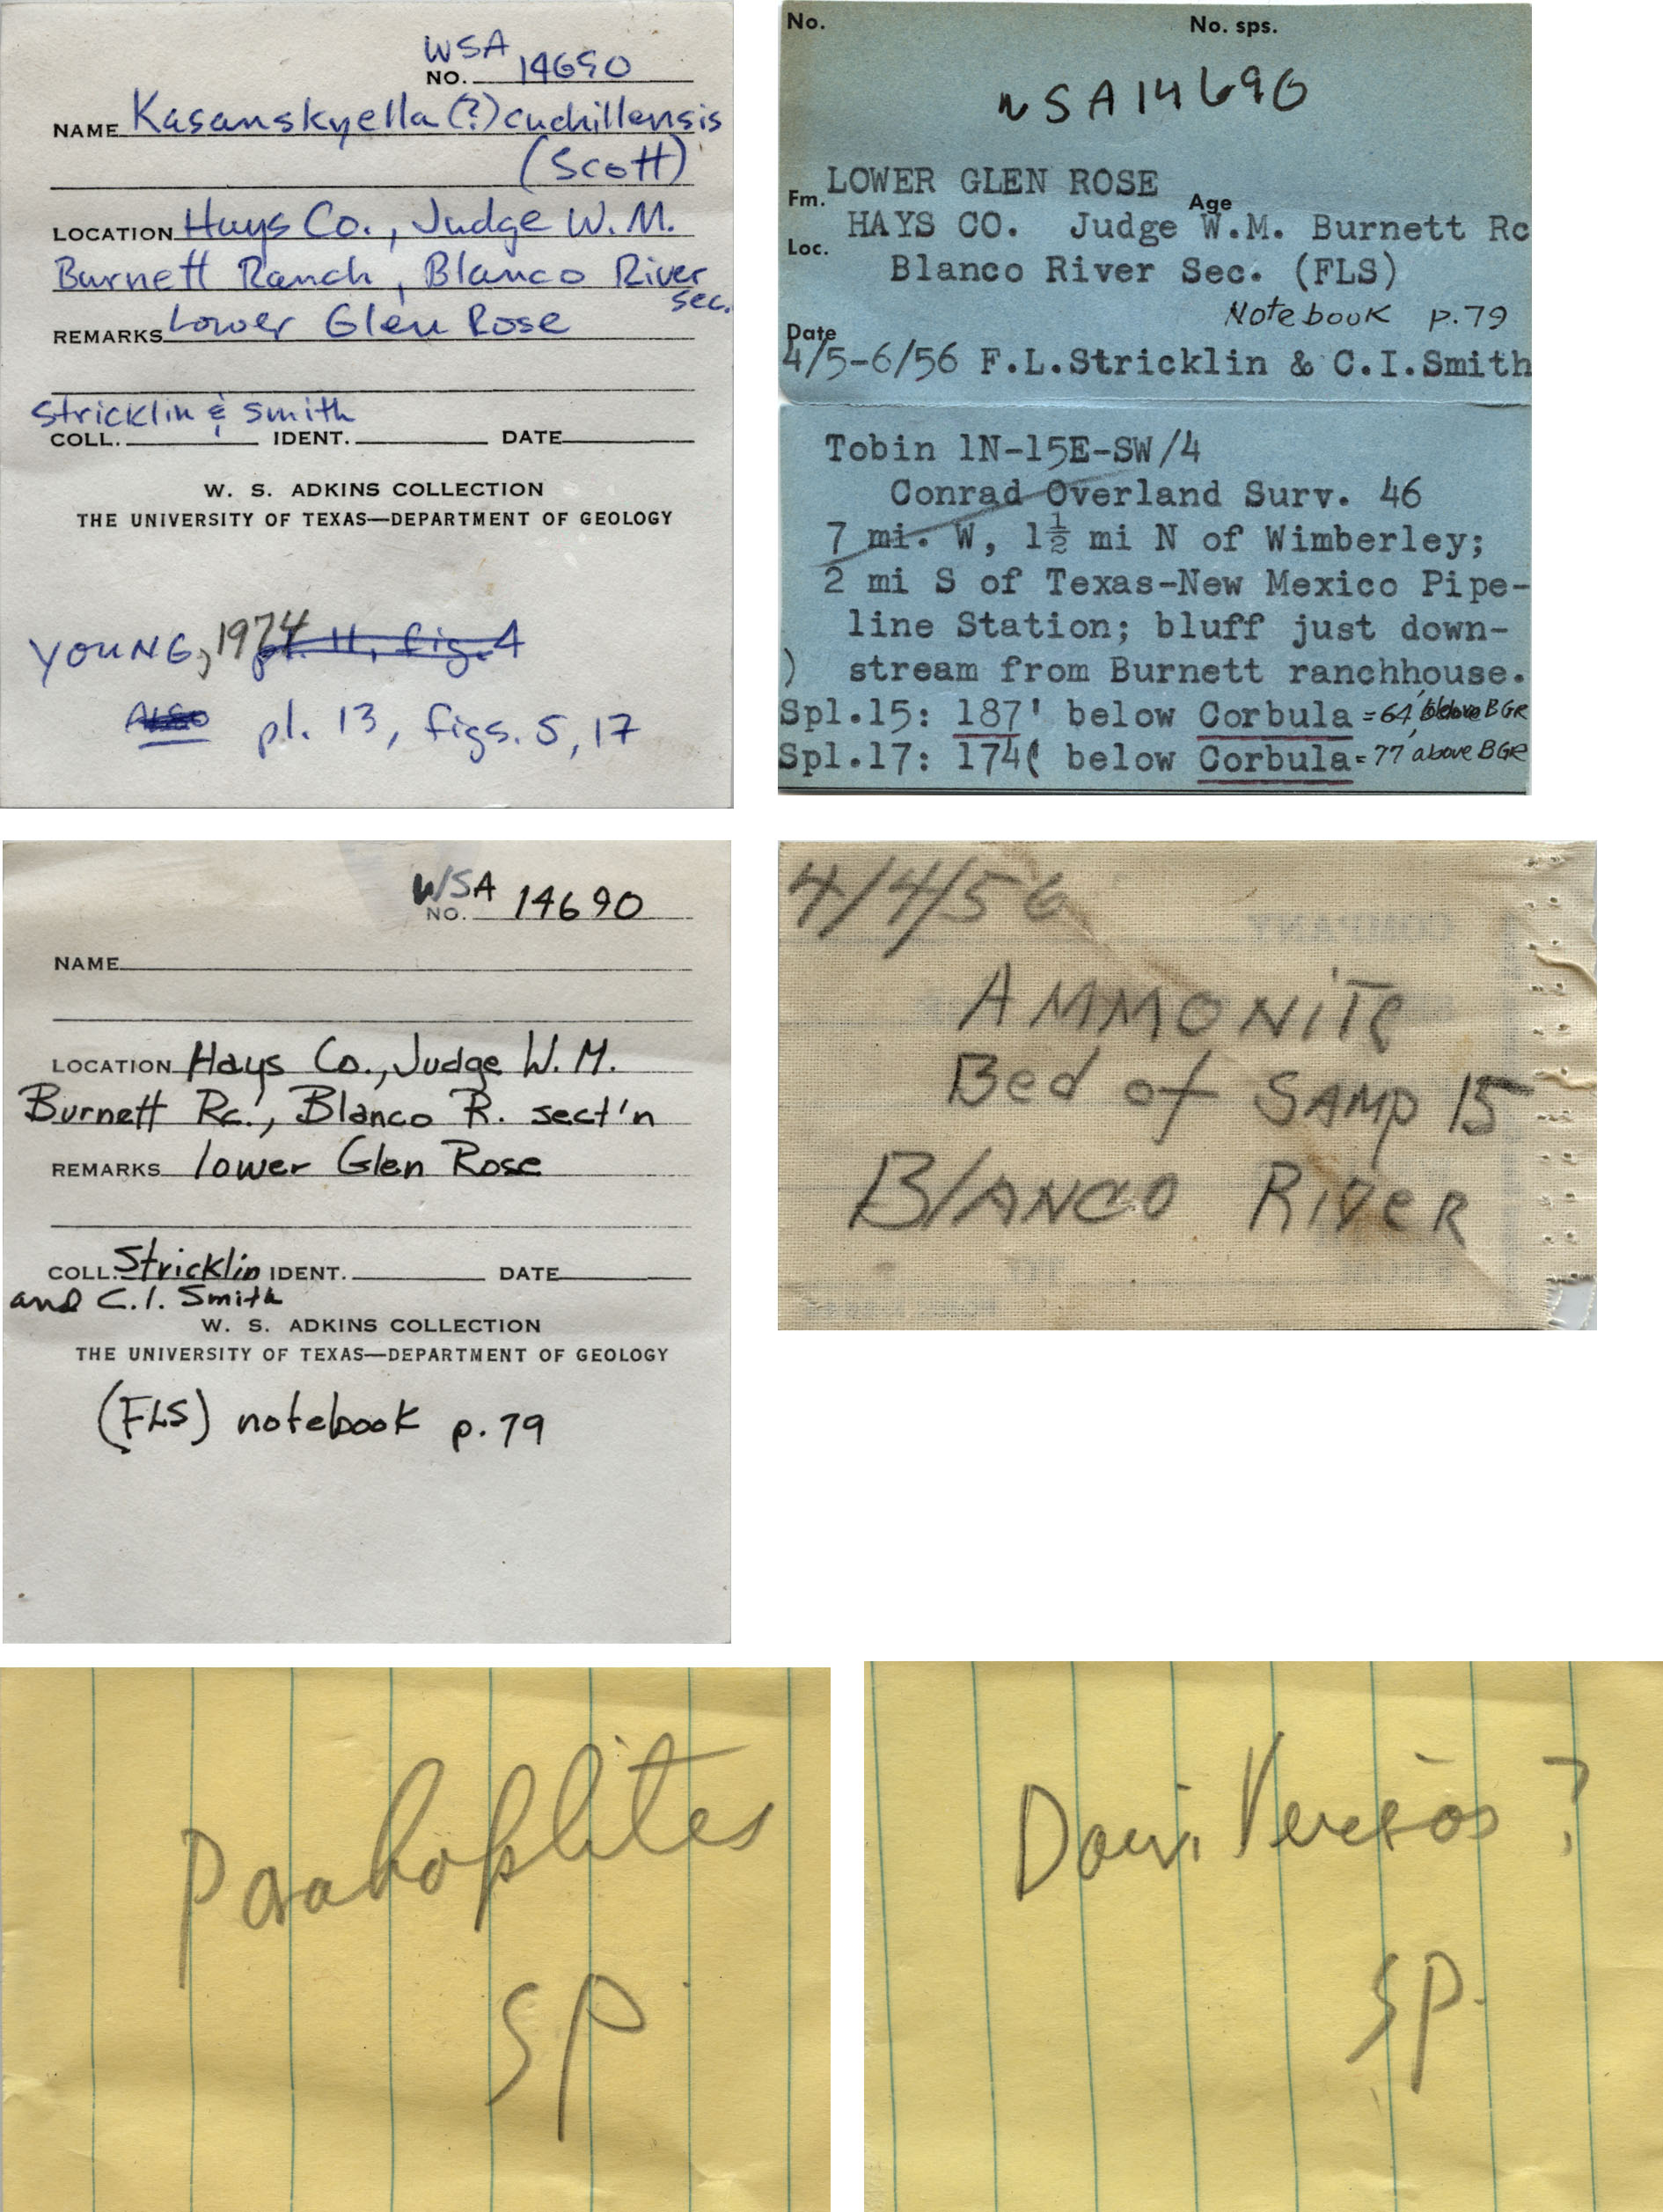 WSA
NO. 14690
NAME Kasanskyella (?) cuchillensis
(Scott)
LOCATION Hays Co., Judge W. M.
Burnett Ranch, Blanco River
sec.
REMARKS Lower Glen Rose
Stricklin & Smith
COLL. IDENT. DATE
W. S. ADKINS COLLECTION
THE UNIVERSITY OF TEXAS—DEPARTMENT OF GEOLOGY
YOUNG, 1974 pl. 11, fig. 4
ALSO pl. 13, figs. 5, 17
No. No. sps.
WSA14690
Fm. LOWER GLEN ROSE Age
Loc. HAYS CO. Judge W.M. Burnett Rc
Blanco River Sec. (FLS)
Notebook p.79
Date
4/5-6/56 F.L.Stricklin & C.I.Smith
Tobin 1N-15E-SW/4
Conrad Overland Surv. 46
7 mi. W, 1½ mi N of Wimberley;
2 mi S of Texas-New Mexico Pipe-
line Station; bluff just down-
) stream from Burnett ranchhouse.
Spl.15: 187' below Corbula = 64' above BGR
Spl.17: 174( below Corbula = 77' above BGR
WSA
NO. 14690
NAME
LOCATION Hays Co., Judge W. M.
Burnett Rc., Blanco R. sect'n
REMARKS lower Glen Rose
COLL. Stricklin IDENT. DATE
and C. I. Smith
W. S. ADKINS COLLECTION
THE UNIVERSITY OF TEXAS—DEPARTMENT OF GEOLOGY
(FLS) notebook p. 79
4/4/56
AMMONITE
Bed of SAMP 15
BLANCO RIVER
Parahoplites
sp.
?
sp.